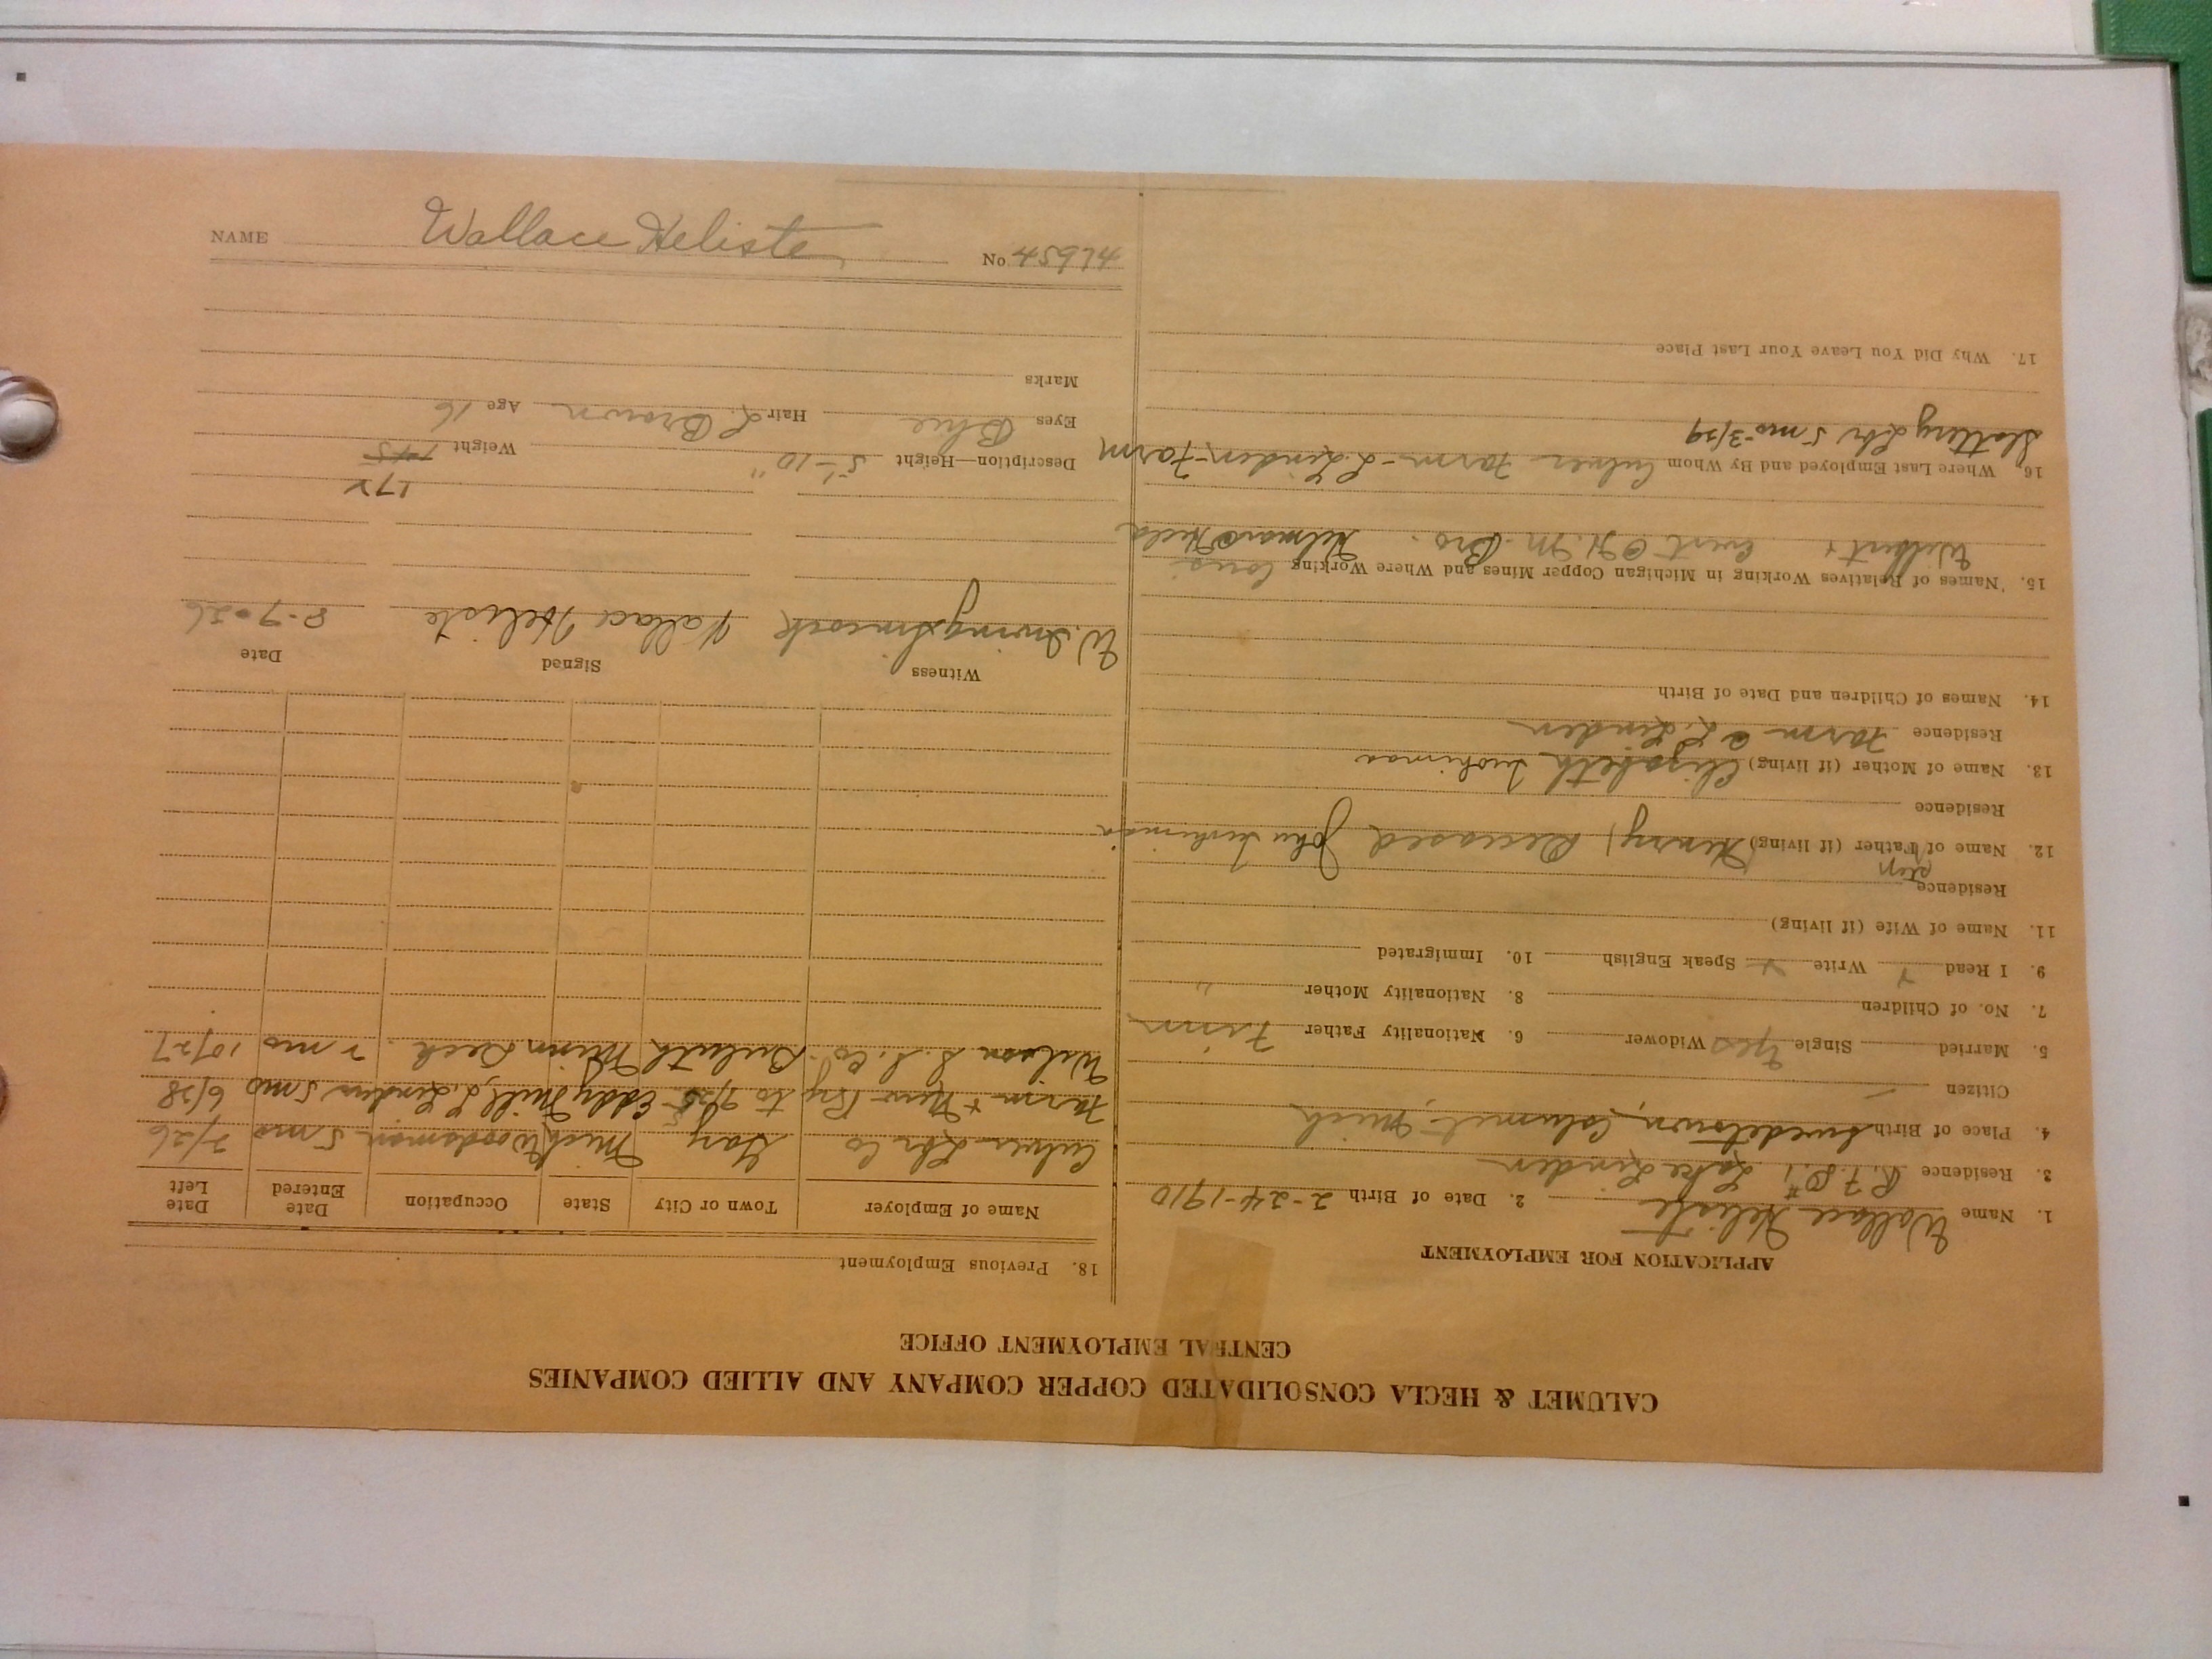 CALUMET & HECLA CONSOLIDATED COPPER COMPANY AND ALLIED COMPANIES
CENTRAL EMPLOYMENT OFFICE
APPLICATION FOR EMPLOYMENT
1. Name Wallace Heliste 2. Date of Birth 2-24-1910
3. Residence R.F.D. #1 Lake Linden
4. Place of Birth Swedetown, Calumet, Mich
Citizen
5. Married Single Yes Widower 6. Nationality Father Finn
7. No. of Children 8. Nationality Mother "
9. I Read Write Speak English 10. Immigrated
11. Name of Wife (if living)
Residence
step
12. Name of Father (if living) Henry) Deceased John
Residence
13. Name of Mother (if living) Elizabeth
Residence Farm @ L. Linden
14. Names of Children and Date of Birth
15. Names of Relatives Working in Michigan Copper Mines and Where Working
Wilbert + @ H. M. Bro. Hilmar @ Hecla
16. Where Last Employed and By Whom Culver Farm - L. Linden - Farm
Slattery Lbr 5 mo - 3/29
17. Why Did You Leave Your Last Place
18. Previous Employment
Name of Employer Town or City State Occupation Date Entered Date Left
Culver Lbr Co Gay Mich Woodsman 5 mo 7/26
Farm + to 9/28 Eddy Mill, L. Linden 5 mo 6/28
Wilson S. S. Co. Duluth Minn Deck. 2 mo 10/27
Witness Signed Date
W. Irving Wallace Heliste 8-7-26
172
Description—Height 5'-10" Weight 145
Eyes Blue Hair L. Brown Age 16
Marks
NAME Wallace Heliste No 45974